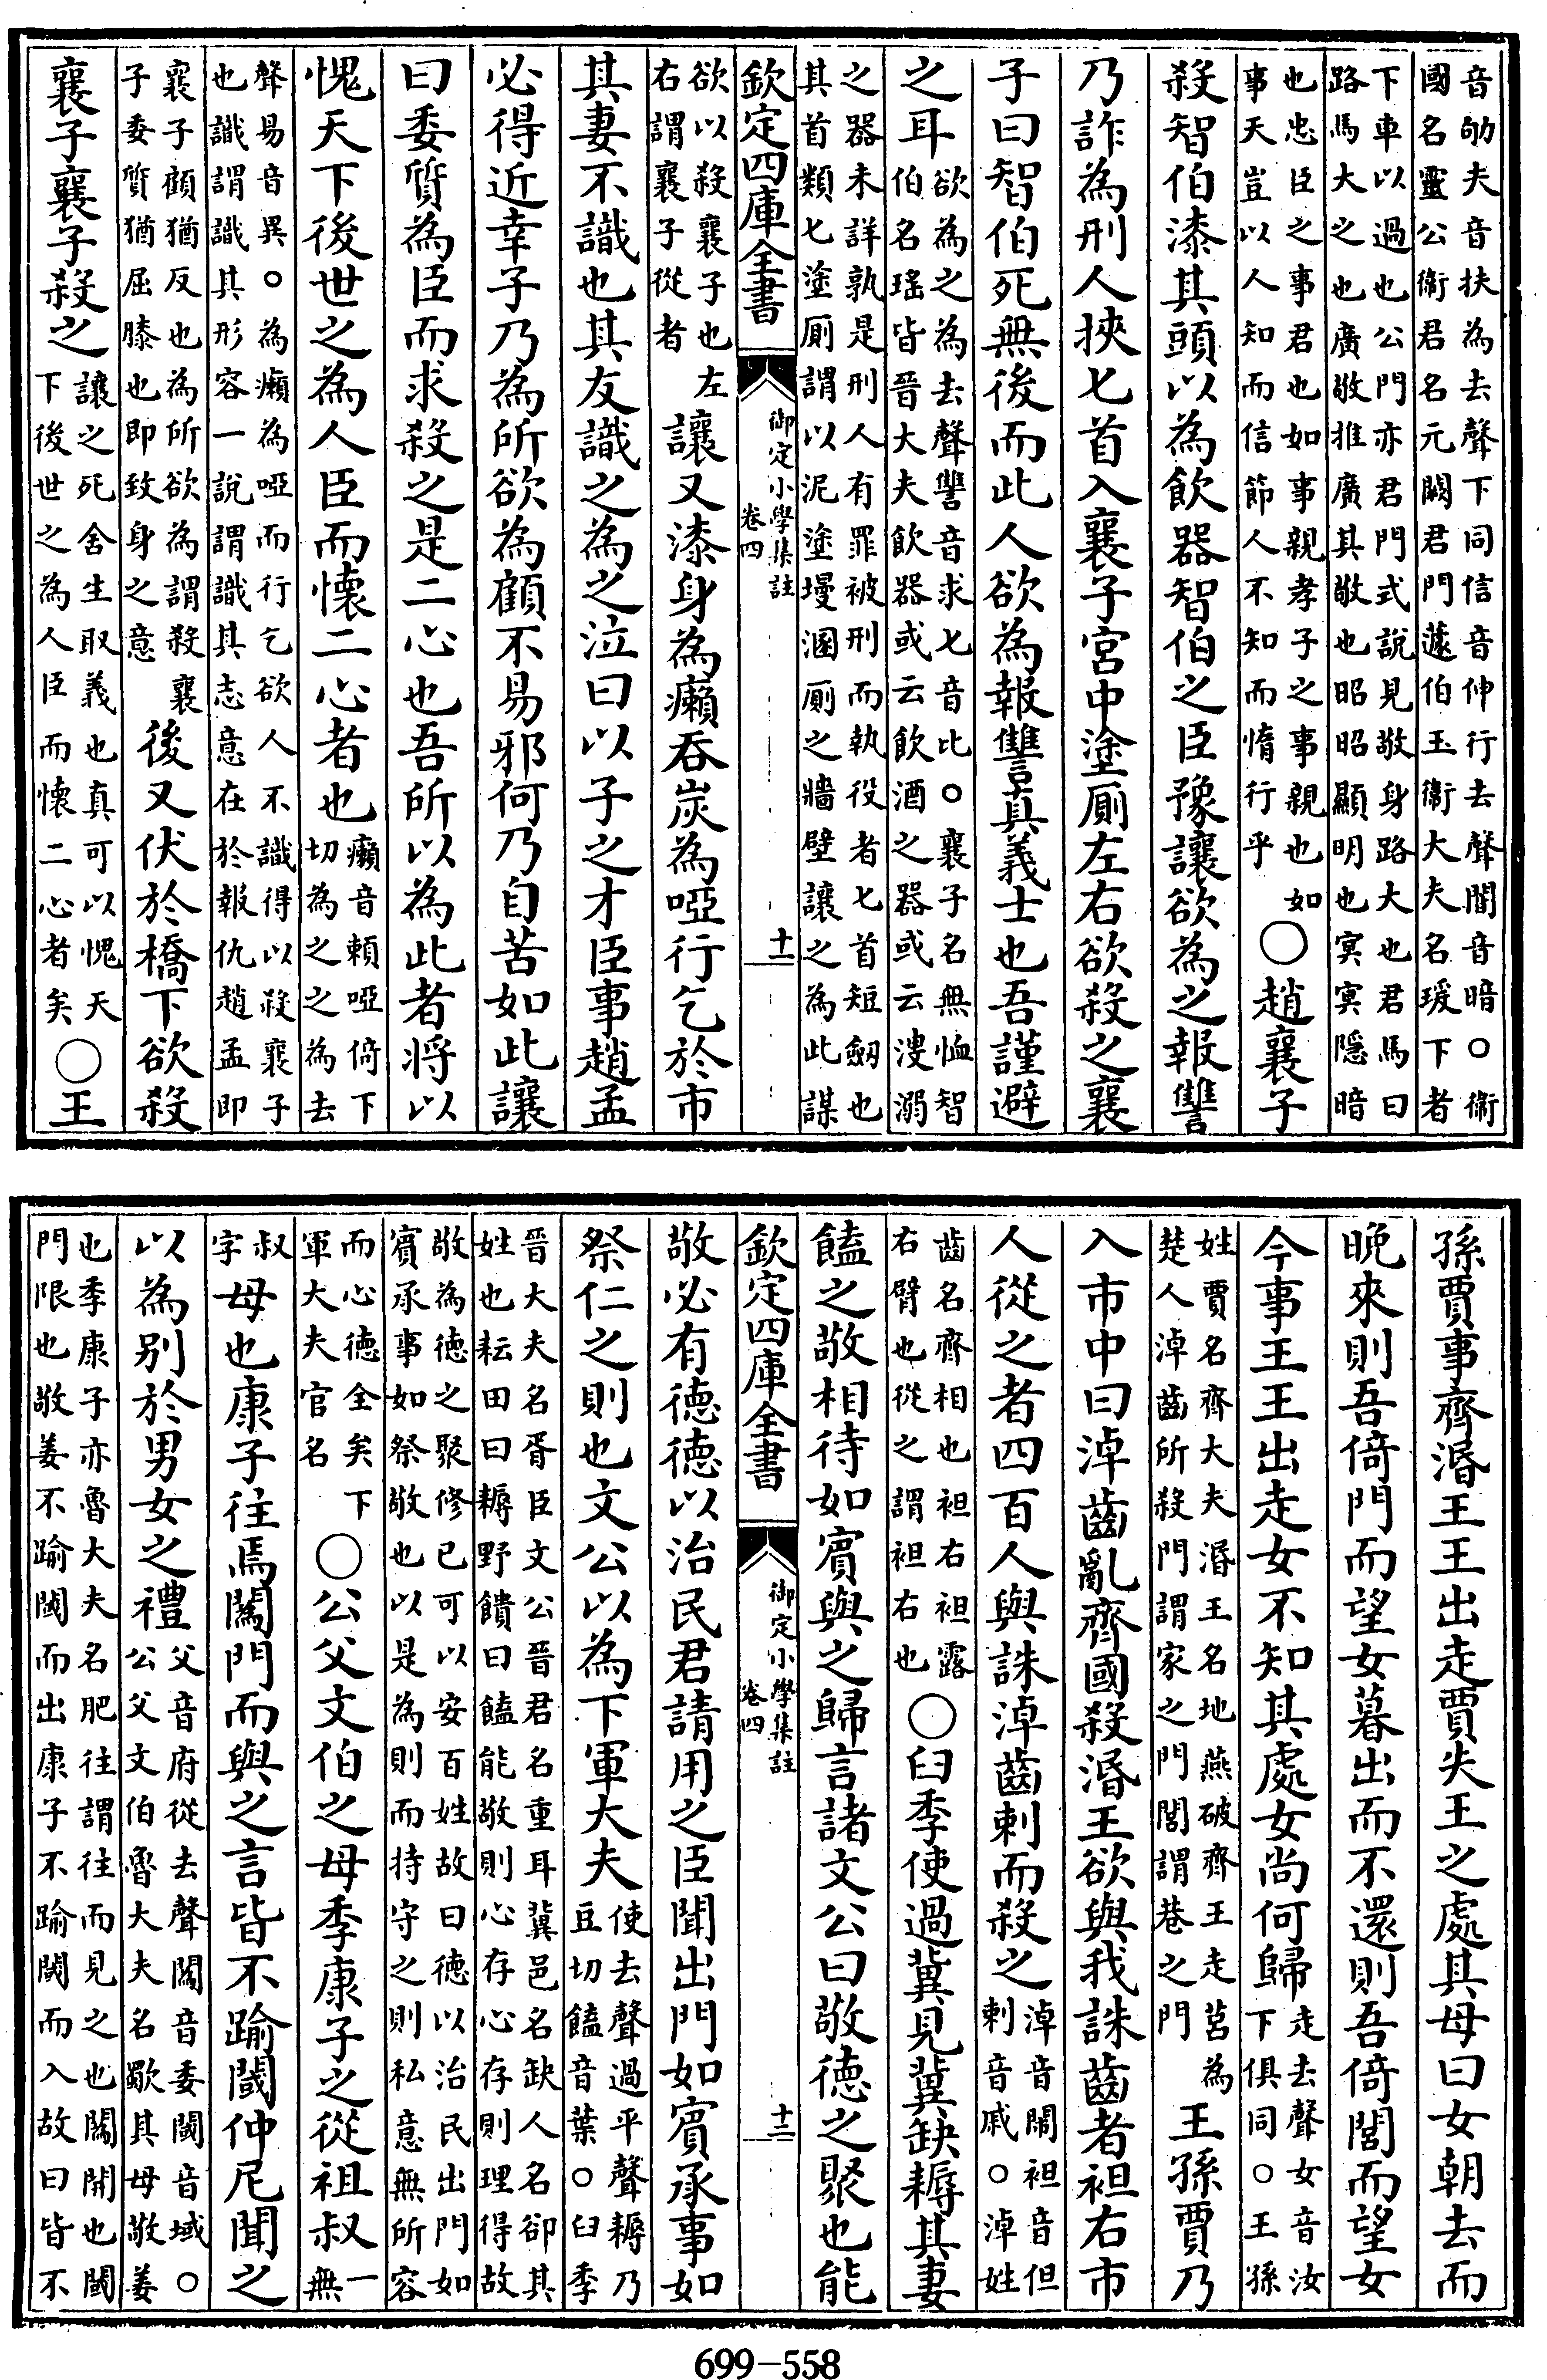 音劬夫音扶為去聲下同信音伸行去聲闇音暗○衞
國名靈公衞君名元闕君門蘧伯玉衞大夫名瑗下者
下車以過也公門亦君門式說見敬身路大也君馬曰
路馬大之也廣敬推廣其敬也昭昭顯明也冥冥隱暗
也忠臣之事君也如事親孝子之事親也如
事天豈以人知而信節人不知而惰行乎
○趙襄子
殺智伯漆其頭以為飲器智伯之臣豫讓欲為之報讐
乃詐為刑人挾匕首入襄子宮中塗厠左右欲殺之襄
子曰智伯死無後而此人欲為報讐真義士也吾謹避
之耳
欲為之為去聲讐音求匕音比○襄子名無恤智
伯名瑤皆晉大夫飲器或云飲酒之器或云溲溺
之器未詳孰是刑人有罪被刑而執役者匕首短劒也
其首類匕塗厠謂以泥塗墁溷厠之牆壁讓之為此謀
欽定四庫全書
御定小學集註
卷四
十一
欲以殺襄子也左
右謂襄子從者
讓又漆身為癩吞炭為啞行乞於市
其妻不識也其友識之為之泣曰以子之才臣事趙孟
必得近幸子乃為所欲為顧不易邪何乃自苦如此讓
曰委質為臣而求殺之是二心也吾所以為此者將以
愧天下後世之為人臣而懷二心者也
癩音賴啞倚下
切為之之為去
聲易音異○為癩為啞而行乞欲人不識得以殺襄子
也識謂識其形容一說謂識其志意在於報仇趙孟即
襄子顧猶反也為所欲為謂殺襄
子委質猶屈膝也即致身之意
後又伏於橋下欲殺
襄子襄子殺之
讓之死舍生取義也真可以愧天
下後世之為人臣而懷二心者矣
○王
孫賈事齊湣王王出走賈失王之處其母曰女朝去而
晚來則吾倚門而望女暮出而不還則吾倚閭而望女
今事王王出走女不知其處女尚何歸
走去聲女音汝
下俱同○王孫
姓賈名齊大夫湣王名地燕破齊王走莒為
楚人淖齒所殺門謂家之門閭謂巷之門
王孫賈乃
入市中曰淖齒亂齊國殺湣王欲與我誅齒者袒右市
人從之者四百人與誅淖齒刺而殺之
淖音閙袒音但
刺音戚○淖姓
齒名齊相也袒右袒露
右臂也從之謂袒右也
○臼季使過冀見冀缺耨其妻
饁之敬相待如賓與之歸言諸文公曰敬德之聚也能
欽定四庫全書
御定小學集註
卷四
十二
敬必有德德以治民君請用之臣聞出門如賓承事如
祭仁之則也文公以為下軍大夫
使去聲過平聲耨乃
豆切饁音葉○臼季
晉大夫名胥臣文公晉君名重耳冀邑名缺人名郤其
姓也耘田曰耨野饋曰饁能敬則心存心存則理得故
敬為德之聚修已可以安百姓故曰德以治民出門如
賓承事如祭敬也以是為則而持守之則私意無所容
而心德全矣下
軍大夫官名
○公父文伯之母季康子之從祖叔
一
無
叔
字
母也康子往焉䦱門而與之言皆不踰閾仲尼聞之
以為別於男女之禮
父音府從去聲䦱音委閾音域○
公父文伯魯大夫名歜其母敬姜
也季康子亦魯大夫名肥往謂往而見之也䦱開也閾
門限也敬姜不踰閾而出康子不踰閾而入故曰皆不
699-558